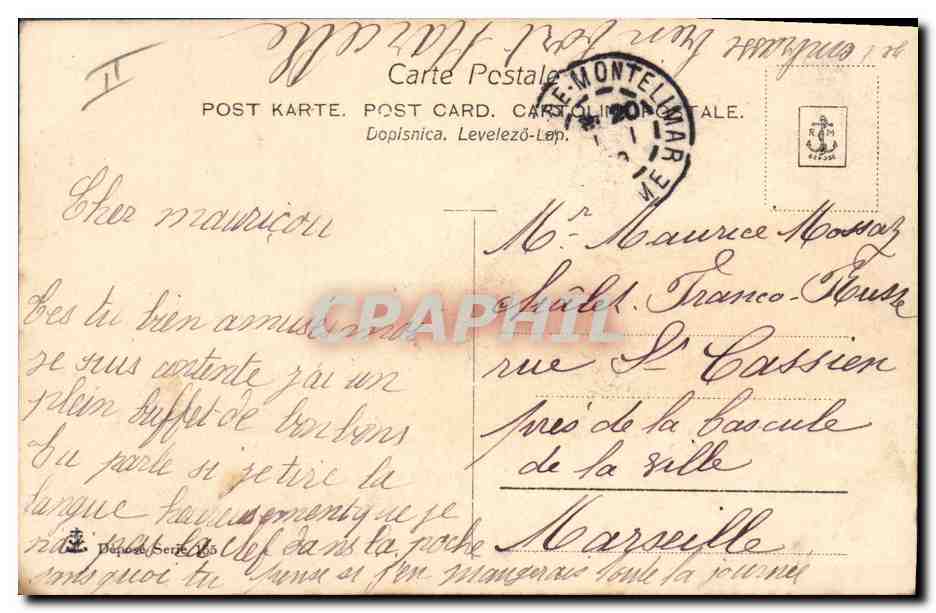 et t'embrasse bien fort Marcelle
II
Carte Postale
POST KARTE. POST CARD. CARTOLINA POSTALE.
Dopisnica. Levelező-Lap.
DE-MONTELIMAR
20
R M
Cher mauriçou
t'es tu bien amusé moi
je suis contente j'ai un
plein buffet de bonbons
Tu parle si je tire la
langue heureusement que je
n'ai pas la clef dans la poche
sans quoi tu pense si j'en mangerais toute la journée
Déposé/Serie 165
Mr Maurice Mossaz
châlet Franco-Russe
rue St Cassien
près de la bascule
de la ville
Marseille
CPAPHIL